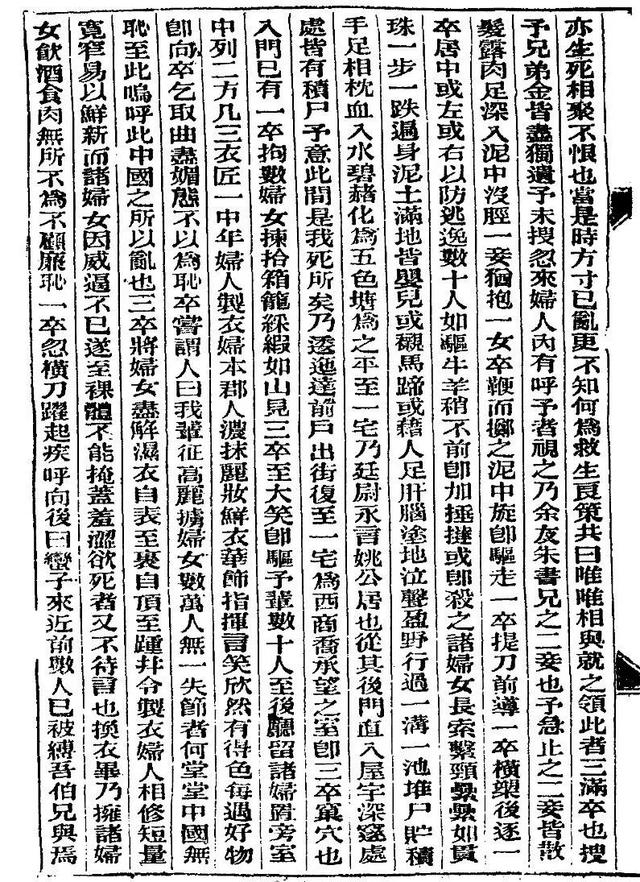 亦生死相聚不恨也當是時方寸已亂更不知何為救生良策共曰唯唯相與就之領此者三滿卒也搜
予兄弟金皆盡獨遺予未搜忽來婦人內有呼予者視之乃余友朱書兄之二妾也予急止之二妾皆散
髮露肉足深入泥中沒脛一妾猶抱一女卒鞭而擲之泥中旋即驅走一卒提刀前導一卒橫槊後逐一
卒居中或左或右以防逃逸數十人如驅牛羊稍不前即加捶撻或即殺之諸婦女長索繫頸纍纍如貫
珠一步一跌遍身泥土滿地皆嬰兒或襯馬蹄或藉人足肝腦塗地泣聲盈野行過一溝一池堆尸貯積
手足相枕血入水碧赭化為五色塘為之平至一宅乃廷尉永言姚公居也從其後門直入屋宇深邃處
處皆有積尸予意此間是我死所矣乃逶迤達前戶出街復至一宅為西商喬承望之室即三卒窠穴也
入門已有一卒拘數婦女揀拾箱籠綵緞如山見三卒至大笑即驅予輩數十人至後廳留諸婦置旁室
中列二方几三衣匠一中年婦人製衣婦本郡人濃抹麗妝鮮衣華飾指揮言笑欣然有得色每過好物
即向卒乞取曲盡媚態不以為恥卒嘗謂人曰我輩征高麗擄婦女數萬人無一失節者何堂堂中國無
恥至此嗚呼此中國之所以亂也三卒將婦女盡解濕衣自表至裏自頂至踵并令製衣婦人相修短量
寬窄易以鮮新而諸婦女因威逼不已遂至裸體不能掩蓋羞澀欲死者又不待言也換衣畢乃擁諸婦
女飲酒食肉無所不為不顧廉恥一卒忽橫刀躍起疾呼向後曰蠻子來近前數人已被縛吾伯兄與焉